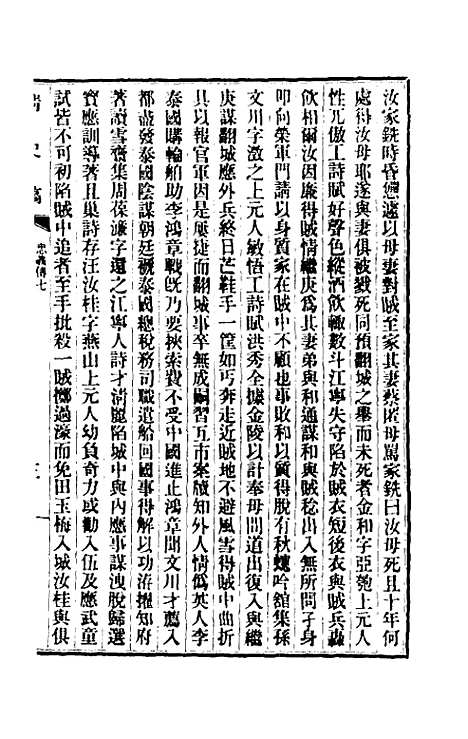 汝家銑時昏憊遽以母妻對賊至家其妻蔡匿母罵家銑曰汝母死且十年何
處得汝母耶遂與妻俱被戮死同預翻城之舉而未死者金和字亞匏上元人
性兀傲工詩賦好聲色縱酒飲輒數斗江寧失守陷於賊衣短後衣與賊兵轟
飲相爾汝因廉得賊情繼庚爲其妻弟與和通謀和與賊稔出入無所問孑身
叩向榮軍門請以身質家在賊中不顧也事敗和以質得脫有秋蟪吟館集孫
文川字澂之上元人敏悟工詩賦洪秀全據金陵以計奉母間道出復入與繼
庚謀翻城應外兵終日芒鞋手一筐如丐奔走近賊地不避風雪得賊中曲折
具以報官軍因是屢捷而翻城事卒無成嗣習互市案牘知外人情僞英人李
泰國購輪舶助李鴻章戰旣乃要挾索費不受中國進止鴻章聞文川才薦入
都盡發泰國陰謀朝廷褫泰國總稅務司職遣船回國事得解以功洊擢知府
著讀雪齋集周葆濂字還之江寧人詩才淸麗陷城中與內應事謀洩脫歸選
寶應訓導著且巢詩存汪汝桂字燕山上元人幼負奇力或勸入伍及應武童
試皆不可初陷賊中追者至手批殺一賊擲過濠而免田玉梅入城汝桂與俱
清史稿
忠義傳七